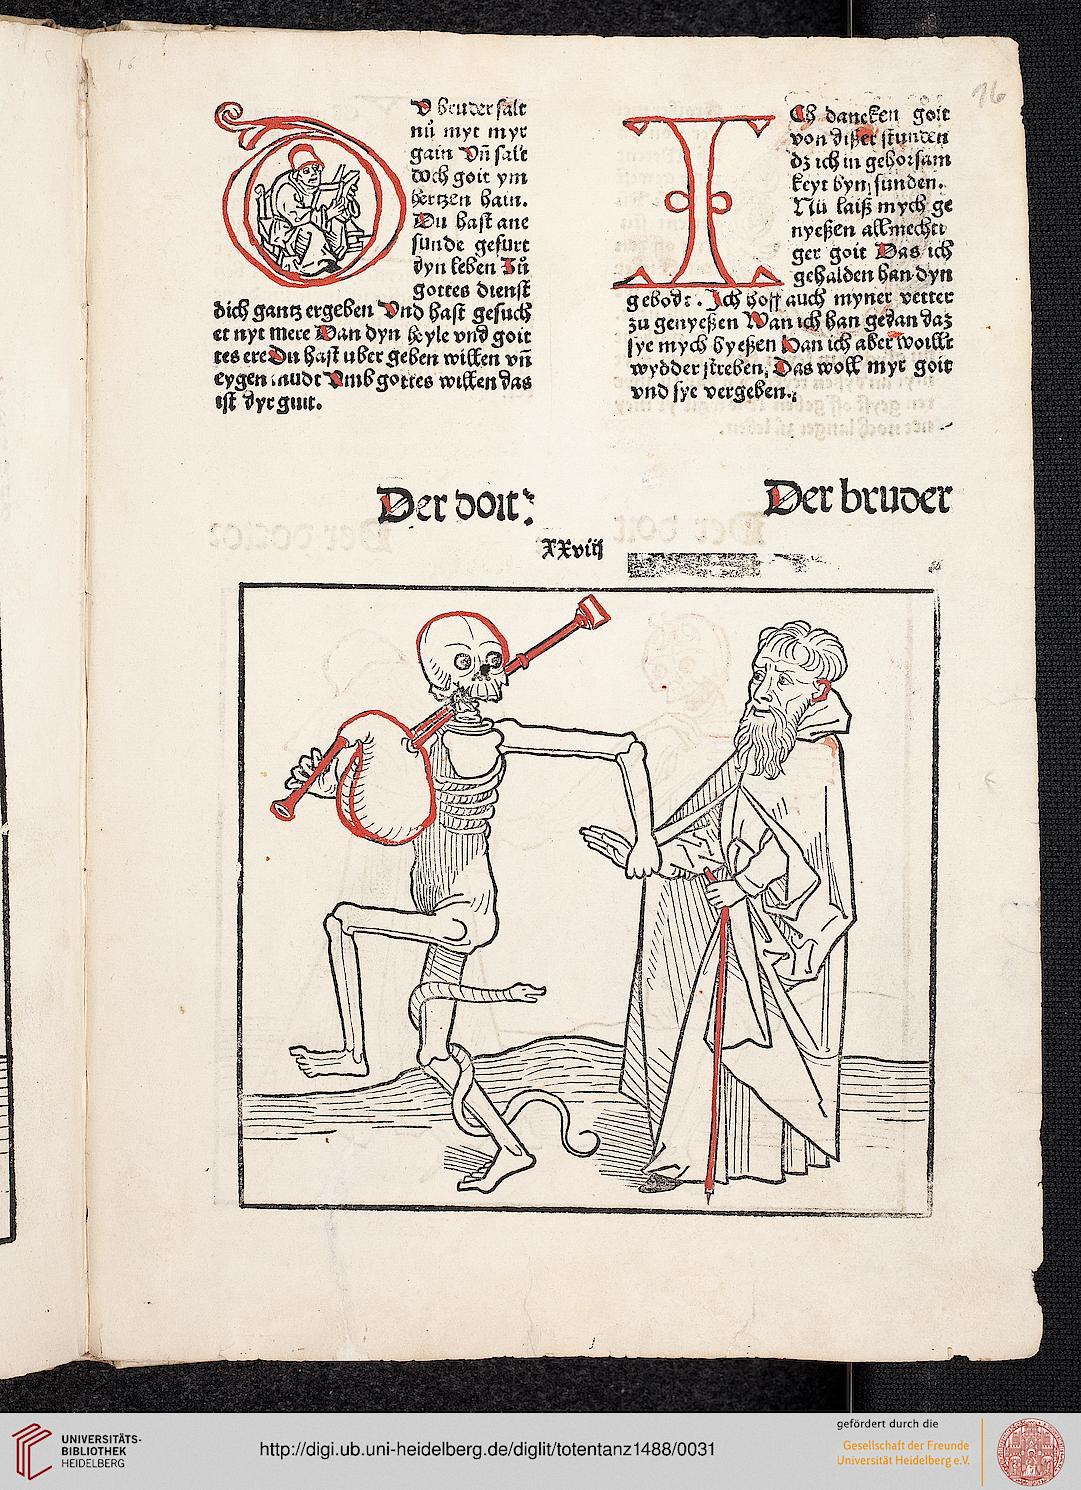 16
DV bruder salt
nů myt myr
gain Vn̄ salt
doch goit ym
hertzen hain.
Du hast ane
sunde gefurt
dyn leben Zů
gottes dienst
dich gantz ergeben Vnd hast gesuch
et nyt mere Dan dyn heyle vnd goit
tes ere Du hast uber geben willen vn̄
eygen Vmb gottes willen das
ist dyr guit.
ICh dancken goit
von dißer stunden
dz ich in gehorsam
keyt byn funden.
Nů laiß mych ge
nyeßen allmechti
ger goit Das ich
gehalden han dyn
gebodt. Ich hoff auch myner vetter
zu genyeßen Wan ich han gedan daz
sye mych hyeßen Han ich aber woillt
wydder streben, Das woll myr goit
vnd sye vergeben.
Der doit:
Der bruder
XXviij
UNIVERSITÄTS-
BIBLIOTHEK
HEIDELBERG
http://digi.ub.uni-heidelberg.de/diglit/totentanz1488/0031
gefördert durch die
Gesellschaft der Freunde
Universität Heidelberg e.V.